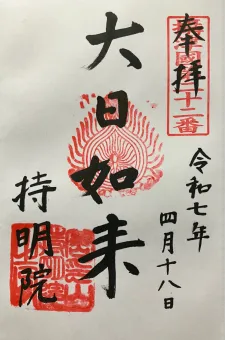 奉拝
令和七年
四月十八日
大日如来
持明院